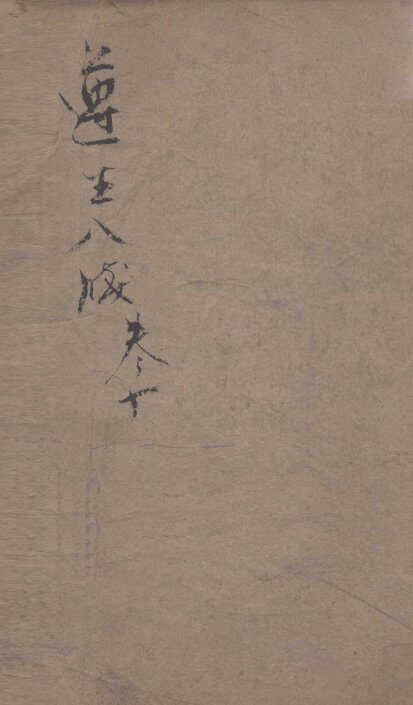 遵生八牋卷十